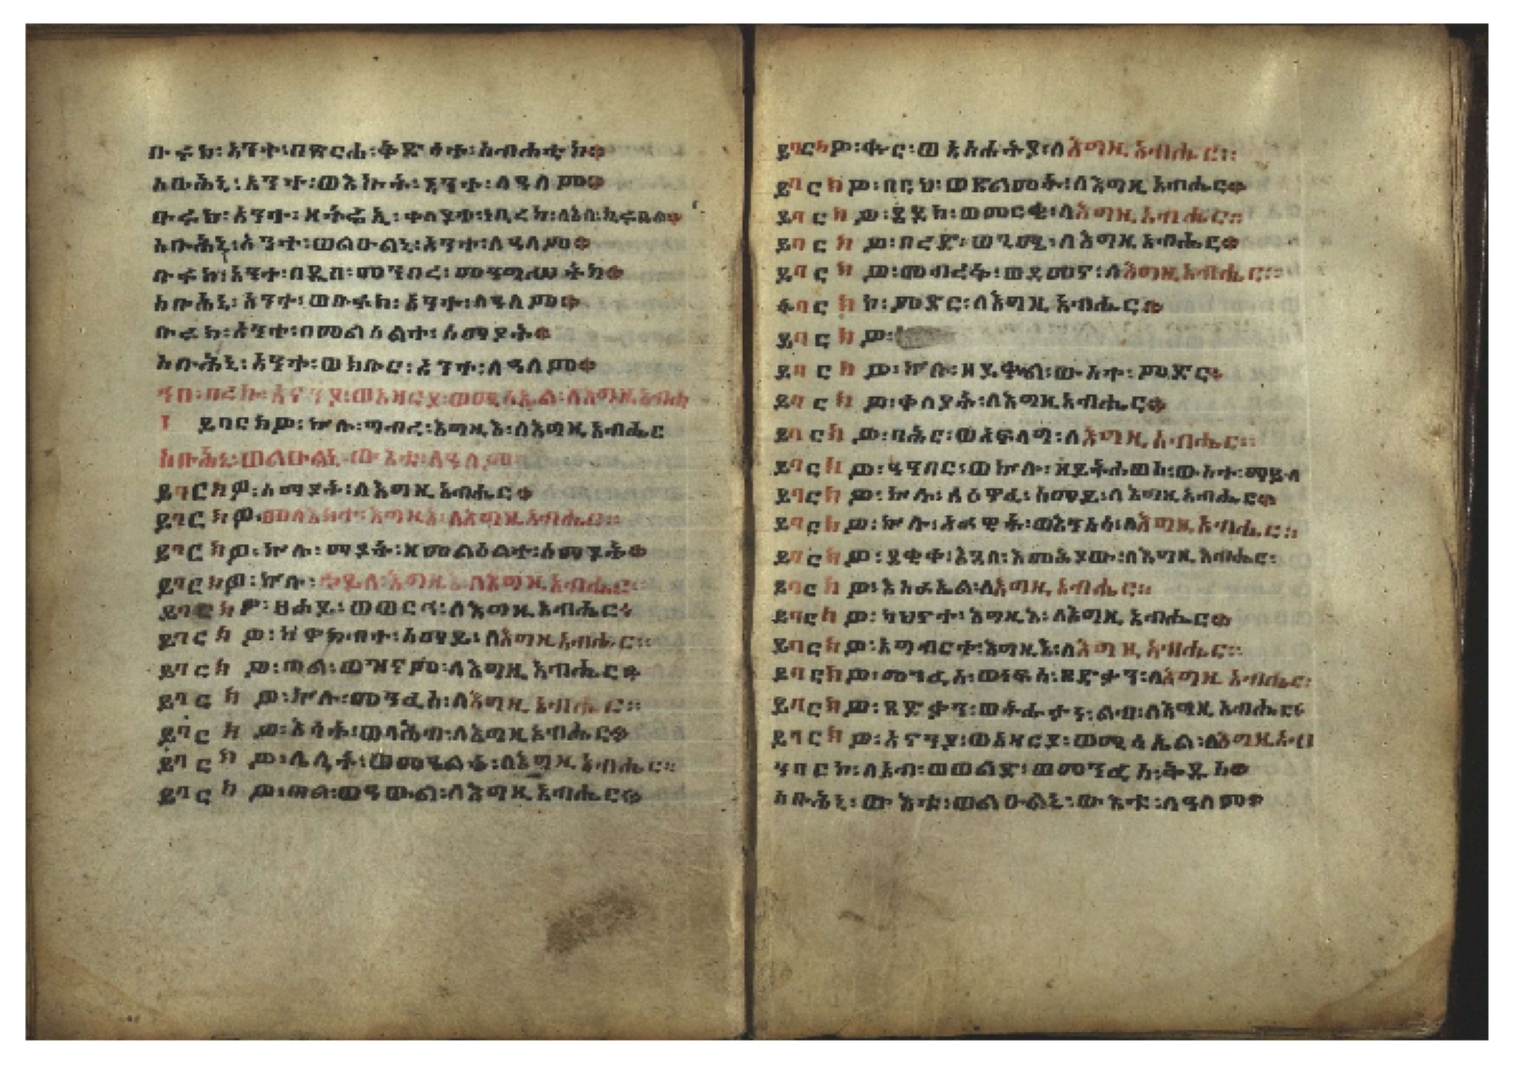 ቡሩክ፡አንተ፡በጽርሐ፡ቅድሳተ፡ስብሐቲከ።
ስቡሕኒ፡አንተ፡ወእኩት፡አንተ፡ለዓለም።
ቡሩክ፡አንተ፡ዘትሬኢ፡ቀላያተ፡ነቢረከ፡ላዕለ፡ኪሩቤል።
ስቡሕኒ፡አንተ፡ወልዑልኒ፡አንተ፡ለዓለም።
ቡሩክ፡አንተ፡በዲበ፡መንበረ፡መንግሥትከ።
ስቡሕኒ፡አንተ፡ወቡሩክ፡አንተ፡ለዓለም።
ቡሩክ፡አንተ፡በመልዕልተ፡ሰማያት።
ስቡሕኒ፡አንተ፡ወክቡር፡አንተ፡ለዓለም።
አናንያ፡ወአዛርያ፡ወሚሳኤል፡ለእግዚአብሔ
ይባርክዎ፡ኵሉ፡ግብረ፡እግዚእ፡ለእግዚአብሔር
ስቡሕኒ፡ወልዑልኒ፡ውእቱ፡ለዓለም
ይባርክዎ፡ሰማያት፡ለእግዚአብሔር።
ይባርክዎ፡መላእክተ፡እግዚእ፡ለእግዚአብሔር።
ይባርክዎ፡ኵሉ፡ማያት፡ዘመልዕልተ፡ሰማያት።
ይባርክዎ፡ኵሉ፡ኀይለ፡እግዚእ፡ለእግዚአብሔር።
ይባርክዎ፡ፀሐይ፡ወወርኅ፡ለእግዚአብሔር።
ይባርክዎ፡ከዋክብተ፡ሰማይ፡ለእግዚአብሔር።
ይባርክዎ፡ጠል፡ወዝናም፡ለእግዚአብሔር።
ይባርክዎ፡ኵሉ፡መንፈስ፡ለእግዚአብሔር።
ይባርክዎ፡እሳት፡ወላሕብ፡ለእግዚአብሔር።
ይባርክዎ፡ሌሊት፡ወመዓልት፡ለእግዚአብሔር።
ይባርክዎ፡ጠል፡ለእግዚአብሔር።
ይባርክዎ፡ቍር፡ወአስሐትያ፡ለእግዚአብሔር።
ይባርክዎ፡በርህ፡ወጽልመት፡ለእግዚአብሔር።
ይባርክዎ፡ለእግዚአብሔር።
ይባርክዎ፡በረድ፡ወጊሜ፡ለእግዚአብሔር።
ይባርክዎ፡መብረቅ፡ወደመና፡ለእግዚአብሔር።
ትባርኮ፡ምድር፡ለእግዚአብሔር።
ይባርክዎ፡
ይባርክዎ፡ኵሉ፡ዘይበቍል፡ውስተ፡ምድር።
ይባርክዎ፡ቀላያት፡ለእግዚአብሔር።
ይባርክዎ፡ባሕር፡ወአፍላግ፡ለእግዚአብሔር።
ይባርክዎ፡ዓንበር፡ወኵሉ፡ዘይትሐወስ፡ውስተ፡ማይ፡ለ
ይባርክዎ፡ኵሉ፡አዕዋፈ፡ሰማይ፡ለእግዚአብሔር።
ይባርክዎ፡ኵሉ፡አራዊት፡ወእንስሳ፡ለእግዚአብሔር።
ይባርክዎ፡ደቂቀ፡እጓለ፡እመሕያው፡ለእግዚአብሔር።
ይባርክዎ፡እስራኤል፡ለእግዚአብሔር።
ይባርክዎ፡ካህናተ፡እግዚእ፡ለእግዚአብሔር።
ይባርክዎ፡አግብርተ፡እግዚእ፡ለእግዚአብሔር።
ይባርክዎ፡መንፈስ፡ወነፍሰ፡ጻድቃን፡ለእግዚአብሔር።
ይባርክዎ፡ጻድቃን፡ወትሑታነ፡ልብ፡ለእግዚአብሔር።
ይባርክዎ፡አናንያ፡ወአዛርያ፡ወሚሳኤል፡ለእግዚአብ
ንባርኮ፡ለአብ፡ወወልድ፡ወመንፈስ፡ቅዱስ።
ስቡሕኒ፡ውእቱ፡ወልዑልኒ፡ውእቱ፡ለዓለም።